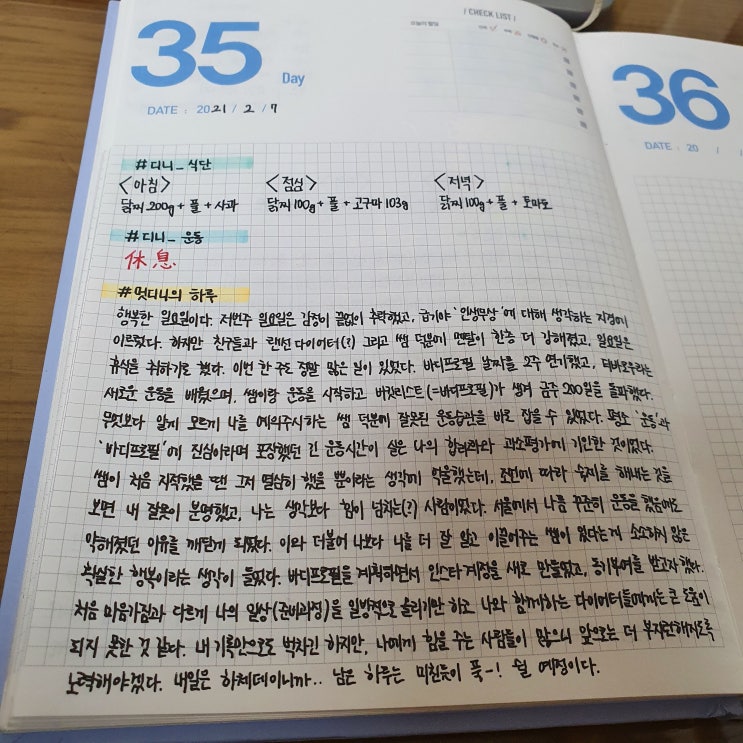 35 Day
DATE : 2021 / 2 / 7
/ CHECK LIST /
36
DATE : 20 / /
#디니_식단
<아침> <점심> <저녁>
닭찌 200g + 풀 + 사과 닭찌 100g + 풀 + 고구마 103g 닭찌 100g + 풀 + 토마토
#디니_운동
休息
#멋디니의 하루
행복한 일요일이다. 저번주 일요일은 감정이 끝없이 추락했고, 급기야 '인생무상'에 대해 생각하는 지경에
이르렀다. 하지만 친구들과 랜선 다이어터(?) 그리고 쌤 덕분에 멘탈이 한층 더 강해졌고, 일요일은
휴식을 취하기로 했다. 이번 한 주도 정말 많은 일이 있었다. 바디프로필 날짜를 2주 연기했고, 테바로우라는
새로운 운동을 배웠으며, 쌤이랑 운동을 시작하고 버킷리스트(=바디프로필)가 생겨 금주 200일을 돌파했다.
무엇보다 알게 모르게 나를 예의주시하는 쌤 덕분에 잘못된 운동습관을 바로 잡을 수 있었다. 평소 '운동'과
'바디프로필'에 진심이라며 포장했던 긴 운동시간이 실은 나의 합리화와 과소평가에 기인한 것이었다.
쌤이 처음 지적했을 땐 그저 열심히 했을 뿐이라는 생각에 억울했는데, 조언에 따라 숙제를 해내는 것을
보면 내 잘못이 분명했고, 나는 생각보다 힘이 넘치는(?) 사람이었다. 서울에서 나름 꾸준히 운동을 했음에도
약해졌던 이유를 깨닫게 되었다. 이와 더불어 나보다 나를 더 잘 알고 이끌어주는 쌤이 있다는게 소소하지 않은
확실한 행복이라는 생각이 들었다. 바디프로필을 계획하면서 인스타 계정을 새로 만들었고, 동기부여를 받고자 했다.
처음 마음가짐과 다르게 나의 일상(준비과정)을 일방적으로 올리기만 하고 나와 함께하는 다이어터들에게는 큰 도움이
되지 못한 것 같다. 내 기록만으로도 벅차긴 하지만, 나에게 힘을 주는 사람들이 많으니 앞으로는 더 부지런해지도록
노력해야겠다. 내일은 하체데이니까.. 남은 하루는 미친듯이 푹-! 쉴 예정이다.